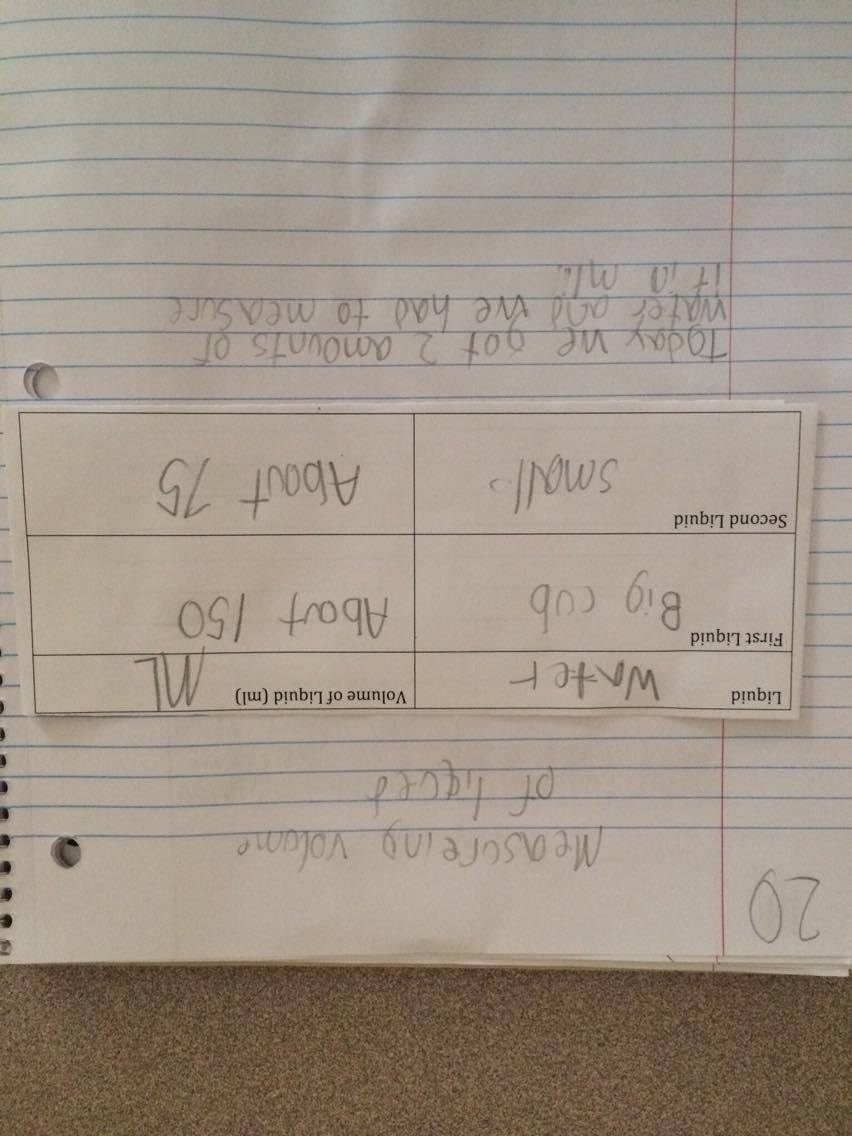 20
Measureing volume
of liqued
Liquid Water Volume of Liquid (ml) ML
First Liquid
Big cub About 150
Second Liquid
small. About 75
Today we got 2 amounts of
water and we had to measure
it in ml.